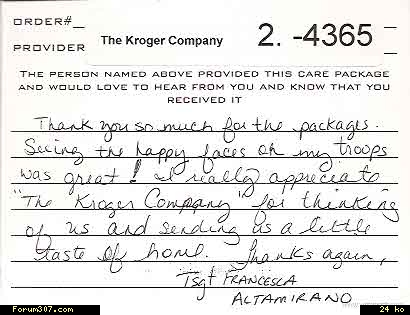 ORDER#_
PROVIDER
The Kroger Company
2. -4365
THE PERSON NAMED ABOVE PROVIDED THIS CARE PACKAGE
AND WOULD LOVE TO HEAR FROM YOU AND KNOW THAT YOU
RECEIVED IT
Thank you so much for the packages.
Seeing the happy faces on my troops
was great! I really appreciate
"The Kroger Company" for thinking
of us and sending us a little
taste of home. Thanks again,
Tsgt FRANCESCA
ALTAMIRANO
Forum307.com
24 ko